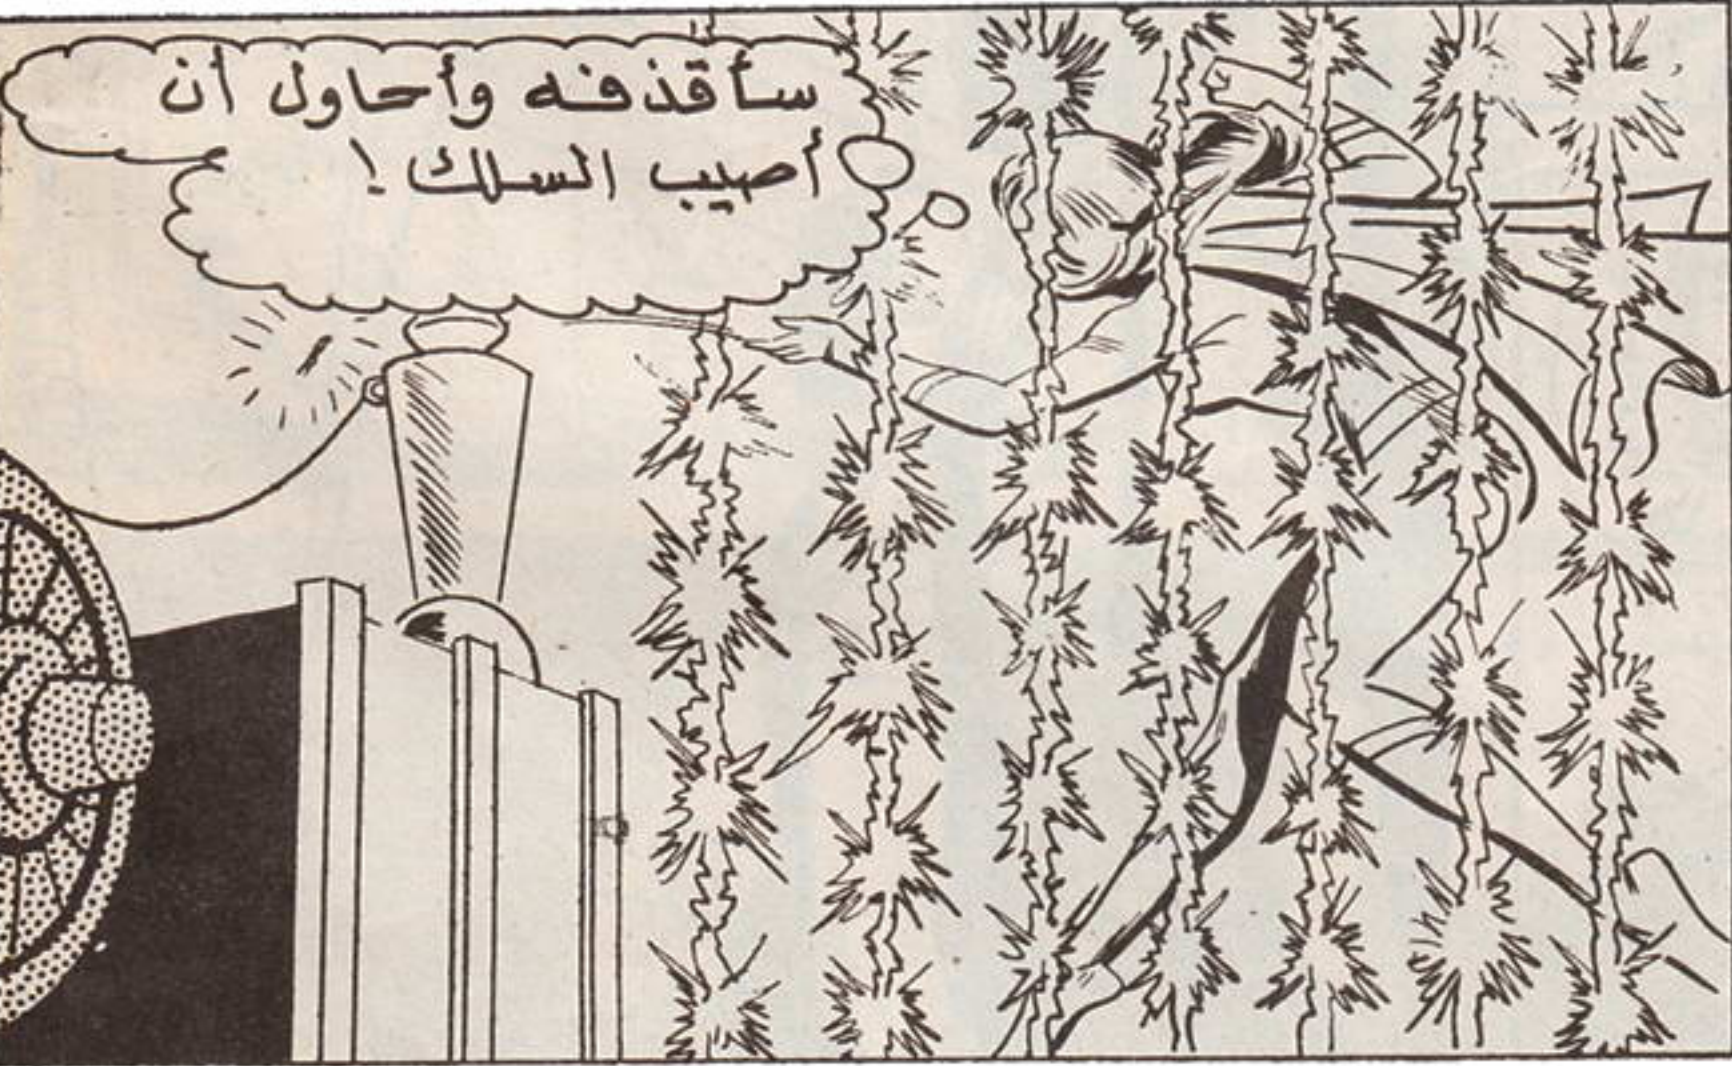 سأقذفه وأحاول أن
أصيب السلك !